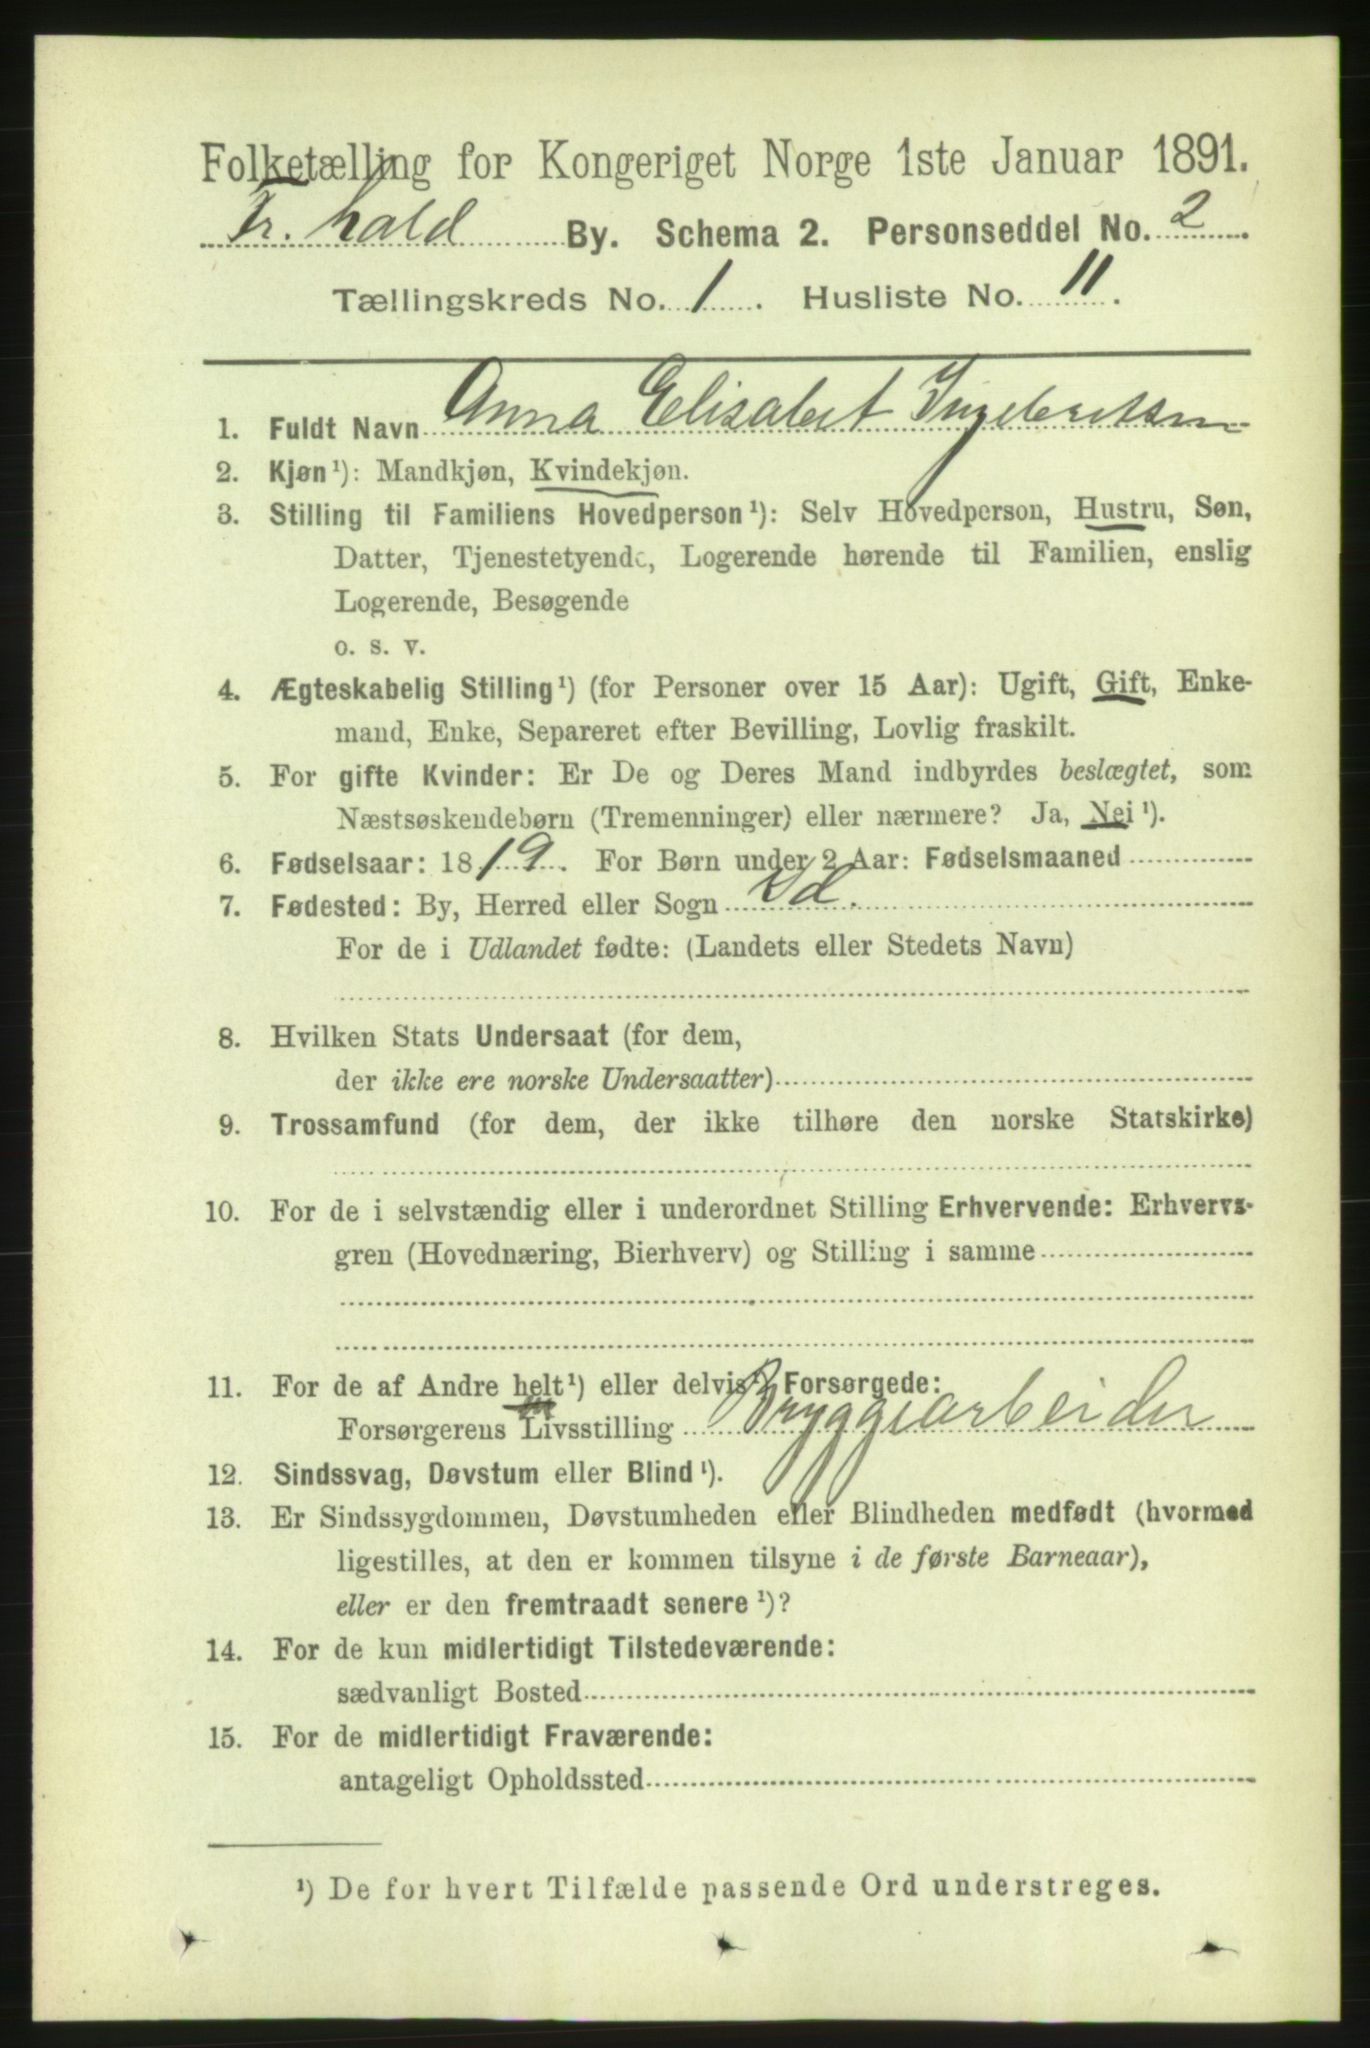 Folketælling for Kongeriget Norge 1ste Januar 1891.
Fr.hald By. Schema 2. Personseddel No. 2.
Tællingskreds No. 1. Husliste No. 11.
1. Fuldt Navn Anna Elisabet Ingebretsen
2. Kjøn¹): Mandkjøn, Kvindekjøn.
3. Stilling til Familiens Hovedperson¹): Selv Hovedperson, Hustru, Søn,
Datter, Tjenestetyende, Logerende hørende til Familien, enslig
Logerende, Besøgende
o. s. v.
4. Ægteskabelig Stilling¹) (for Personer over 15 Aar): Ugift, Gift, Enke-
mand, Enke, Separeret efter Bevilling, Lovlig fraskilt.
5. For gifte Kvinder: Er De og Deres Mand indbyrdes beslægtet, som
Næstsøskendebørn (Tremenninger) eller nærmere? Ja, Nei¹).
6. Fødselsaar: 1819. For Børn under 2 Aar: Fødselsmaaned
7. Fødested: By, Herred eller Sogn Id.
For de i Udlandet fødte: (Landets eller Stedets Navn)
8. Hvilken Stats Undersaat (for dem,
der ikke ere norske Undersaatter)
9. Trossamfund (for dem, der ikke tilhøre den norske Statskirke)
10. For de i selvstændig eller i underordnet Stilling Erhvervende: Erhvervs-
gren (Hovednæring, Bierhverv) og Stilling i samme
11. For de af Andre helt¹) eller delvis¹) Forsørgede:
Forsørgerens Livsstilling Bryggearbeider
12. Sindssvag, Døvstum eller Blind¹).
13. Er Sindssygdommen, Døvstumheden eller Blindheden medfødt (hvormed
ligestilles, at den er kommen tilsyne i de første Barneaar),
eller er den fremtraadt senere¹)?
14. For de kun midlertidigt Tilstedeværende:
sædvanligt Bosted
15. For de midlertidigt Fraværende:
antageligt Opholdssted
¹) De for hvert Tilfælde passende Ord understreges.